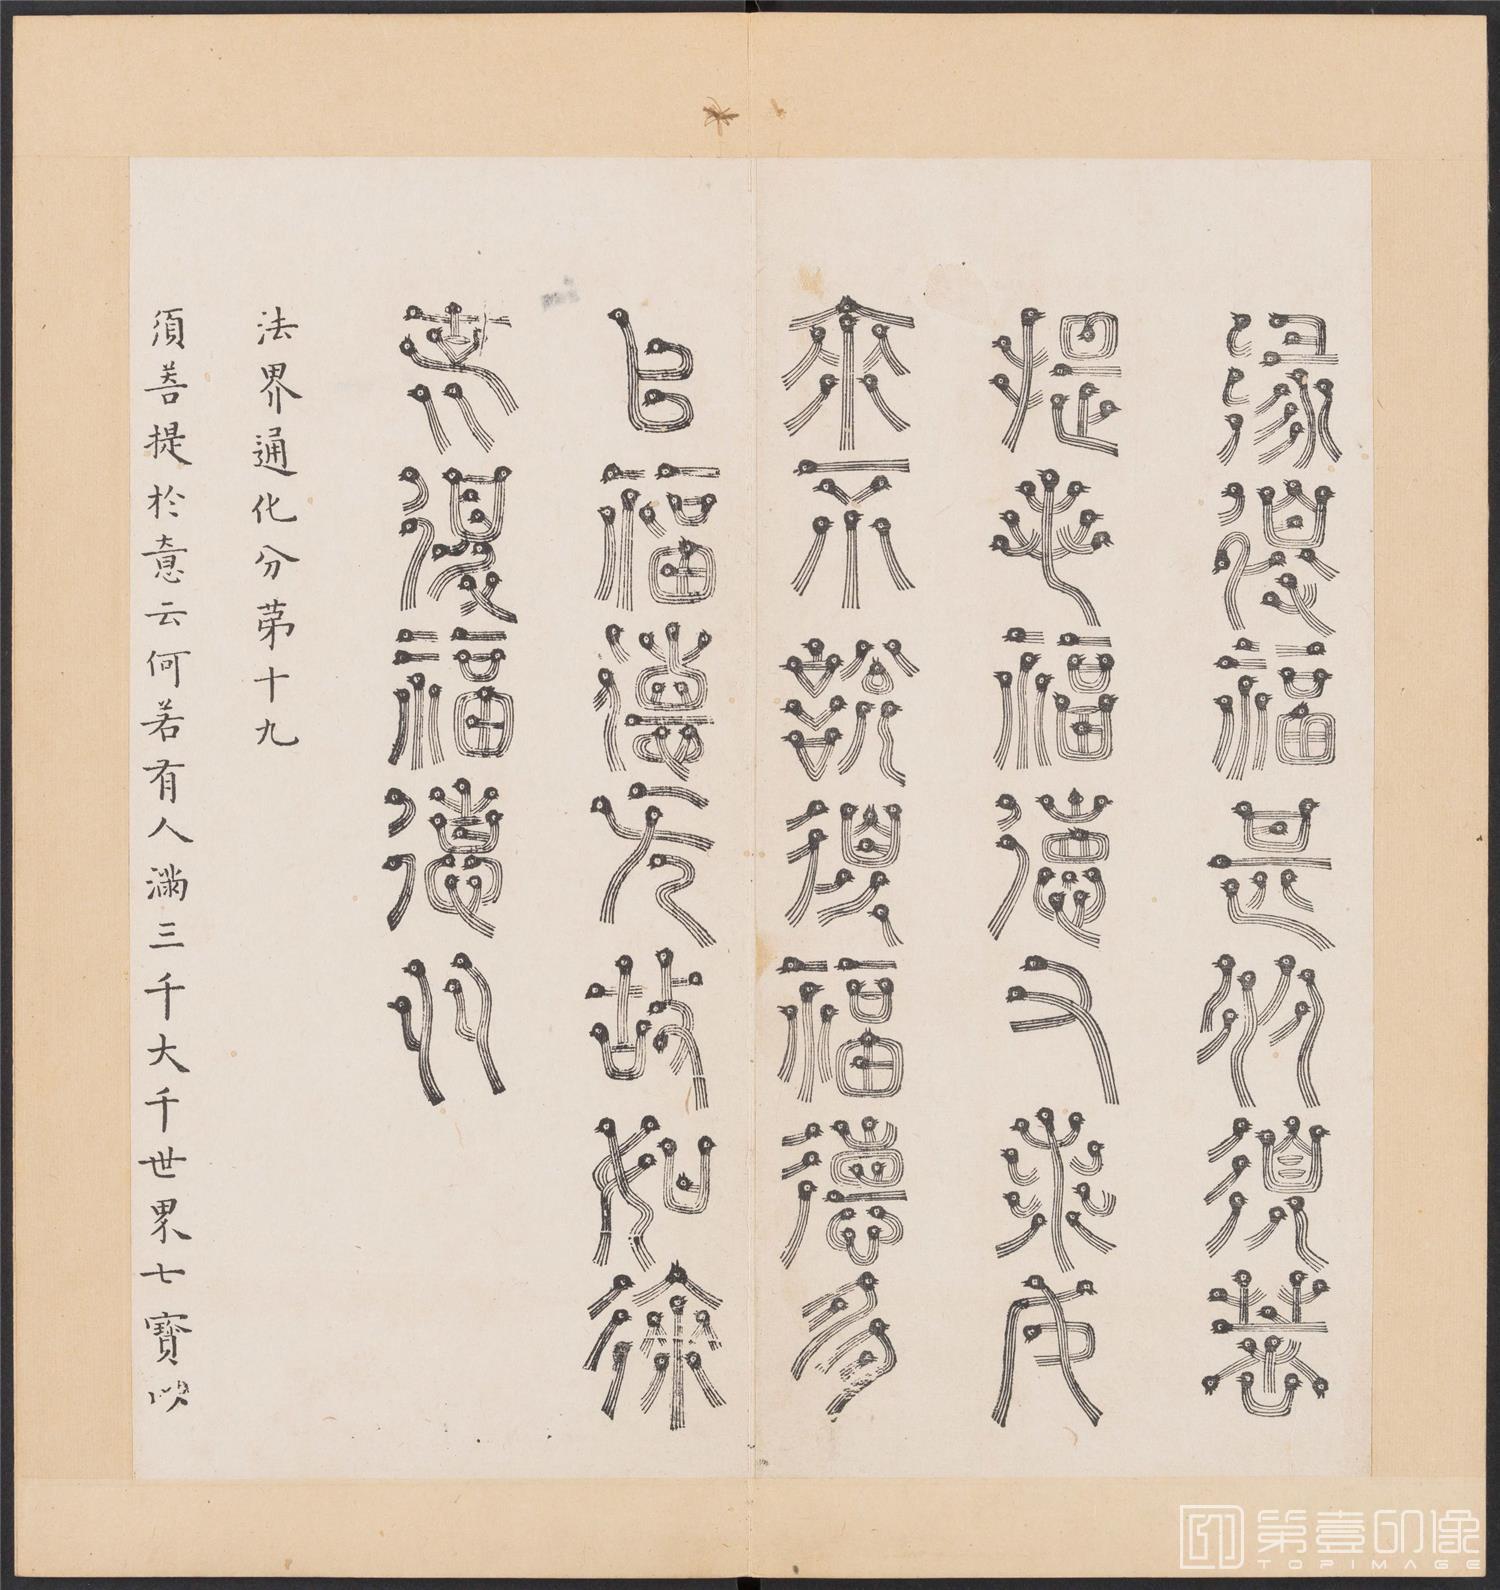 緣得福甚多須菩
提若福德有實如
來不說得福德多
以福德無故如來
說得福德多
法界通化分第十九
須菩提於意云何若有人滿三千大千世界七寶以
第壹印像
TOPIMAGE